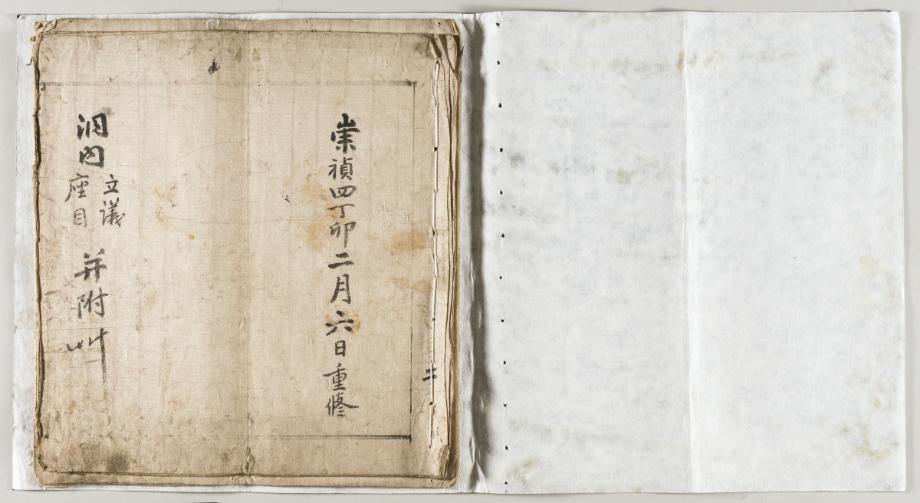 崇禎四丁卯二月六日重修
洞内
立議
座目
并附
艸